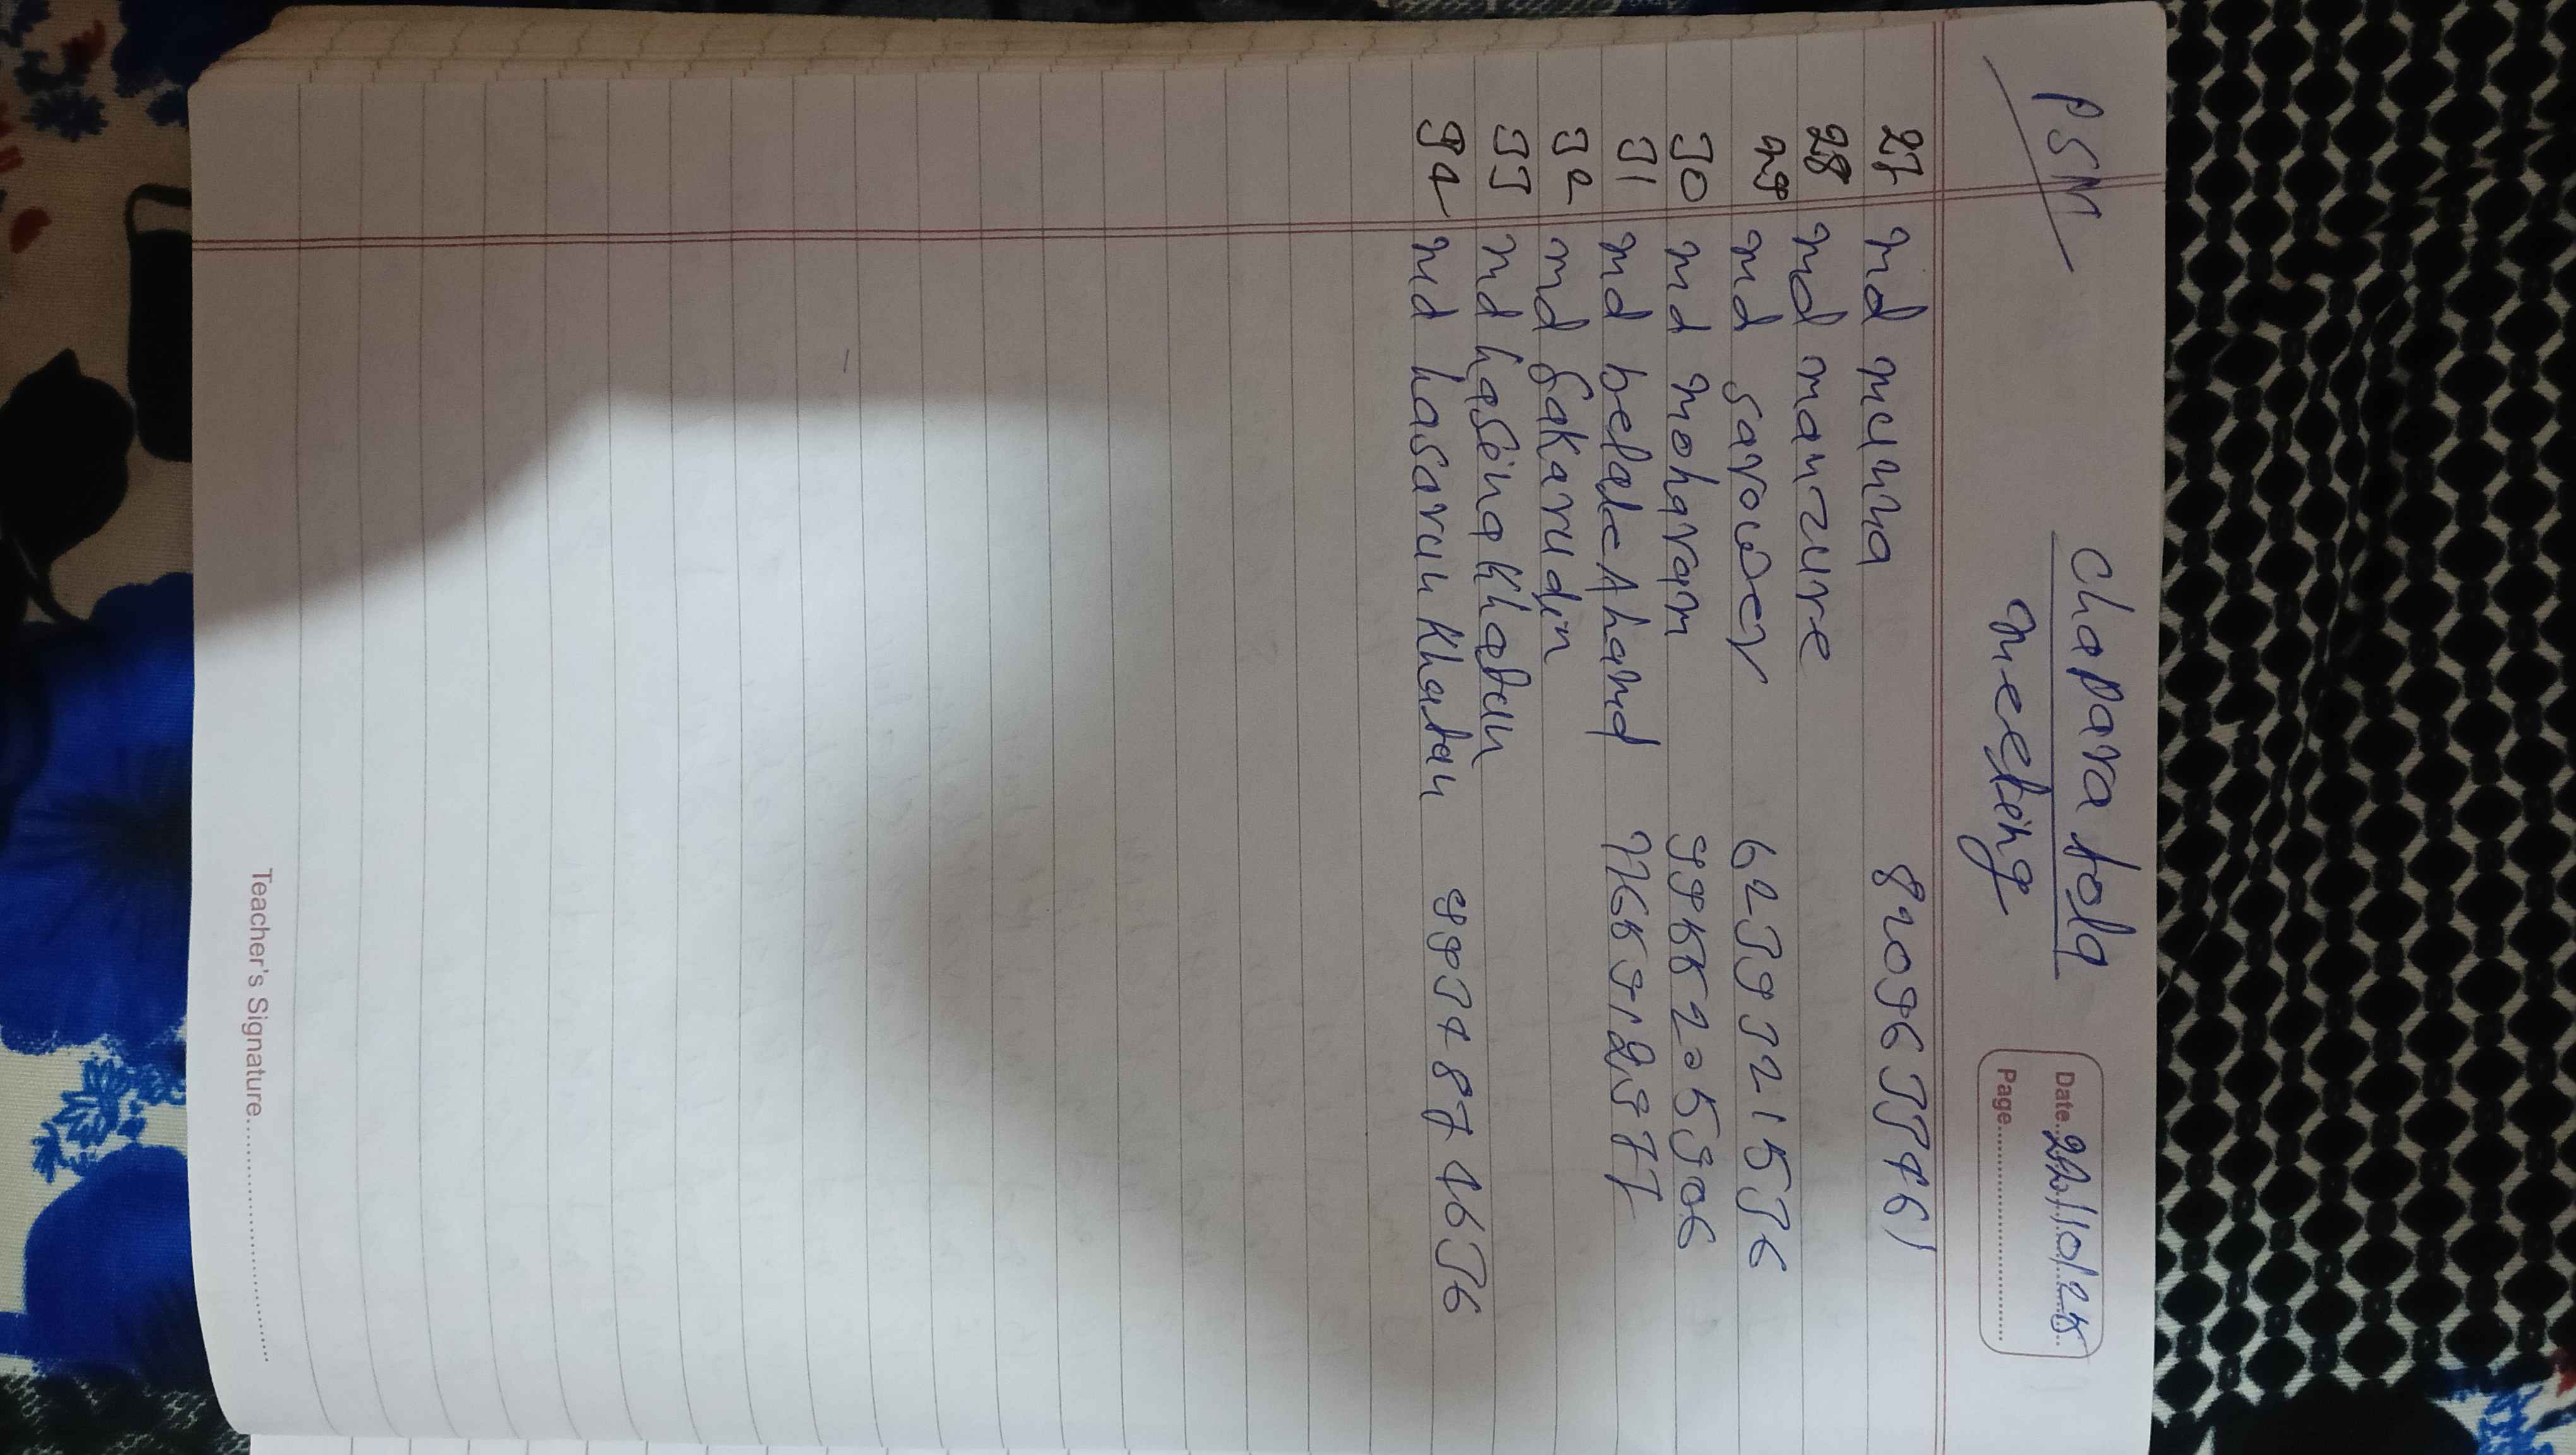 PSM
Chapara tola
meeting
Date 22/10/25
Page
27 md munna 8209633461
28 md manzure
29 md sarower 6239321536
30 md moharam 9955205906
31 md belale Ahamd
32 md fakarudin
33 md hasina Khatun
34 md hasarun Khatun 9934874636
Teacher's Signature